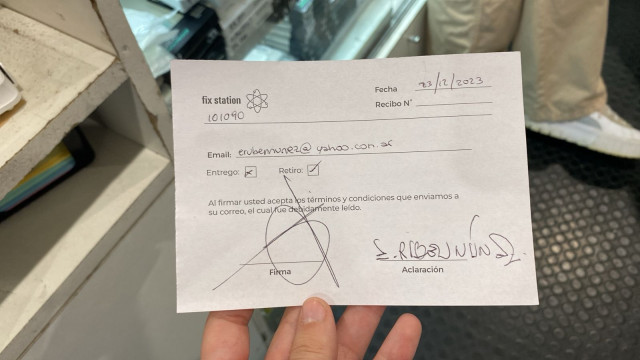 fix station
Fecha 23/12/2023
Recibo N°
101090
Email: erubennunez@yahoo.con.ar
Entrego: Retiro:
Al firmar usted acepta los términos y condiciones que enviamos a
su correo, el cual fue debidamente leído.
Firma
Aclaración